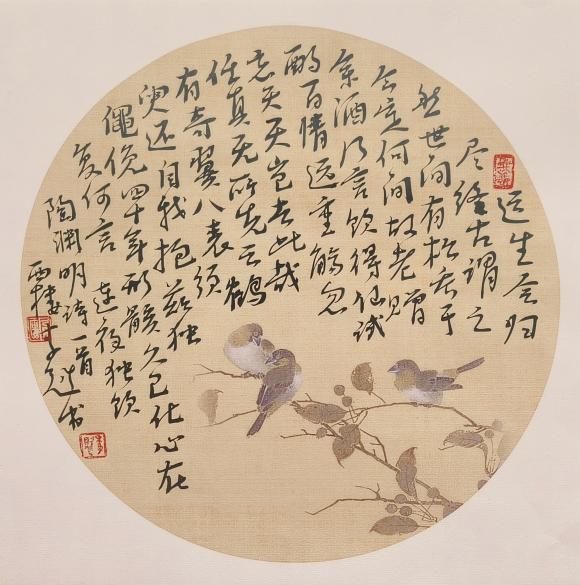 运生会归
尽终古谓之
然世间有松乔于
今定何间故老赠
余酒乃言饮得仙试
酌百情远重觞忽
忘天天岂去此哉
任真无所先云鹤
有奇翼八表须
臾还自我抱兹独
僶俛四十年形骸久已化心在
复何言 连夜独饮
陶渊明诗一首
书